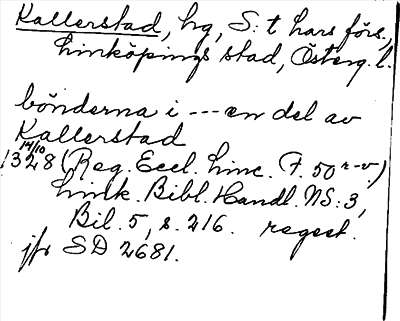 Kallerstad, hg, S:t Lars förs.,
Linköpings stad, Österg. l.
bönderna i --- en del av
Kallerstad
14/10
1328 (Reg. Eccl. Linc. F. 50 r-v)
Link. Bibl. Handl. NS: 3,
Bil. 5, s. 216. regest.
jfr SD 2681.